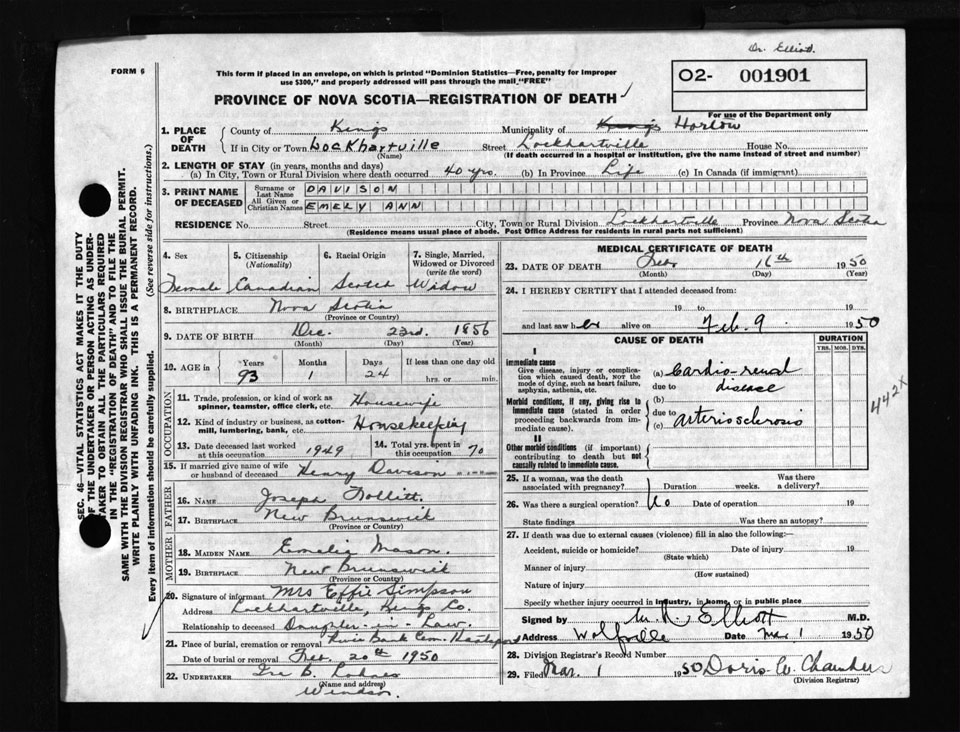 Dr. Elliott.
FORM 6
This form if placed in an envelope, on which is printed "Dominion Statistics—Free, penalty for improper
use $300," and properly addressed will pass through the mail "FREE"
O2- 001901
For use of the Department only
PROVINCE OF NOVA SCOTIA—REGISTRATION OF DEATH
1. PLACE OF DEATH
County of Kings Municipality of Kings Horton
If in City or Town Lockhartville Street Lockhartville House No.
(Name) (If death occurred in a hospital or institution, give the name instead of street and number)
2. LENGTH OF STAY (in years, months and days)
(a) In City, Town or Rural Division where death occurred 40 yrs. (b) In Province Life (c) In Canada (if immigrant)
3. PRINT NAME OF DECEASED
Surname or Last Name DAVISON
All Given or Christian Names EMELY ANN
RESIDENCE No. Street City, Town or Rural Division Lockhartville Province Nova Scotia
(Residence means usual place of abode. Post Office Address for residents in rural parts not sufficient)
4. Sex 5. Citizenship (Nationality) 6. Racial Origin 7. Single, Married, Widowed or Divorced (write the word)
Female Canadian Scotch Widow
8. BIRTHPLACE Nova Scotia
(Province or Country)
9. DATE OF BIRTH Dec. 23rd. 1856
(Month) (Day) (Year)
10. AGE in Years Months Days If less than one day old
93 1 24 hrs. or min.
OCCUPATION
11. Trade, profession, or kind of work as
spinner, teamster, office clerk, etc. Housewife
12. Kind of industry or business, as cotton-
mill, lumbering, bank, etc. Housekeeping
13. Date deceased last worked
at this occupation 1949
14. Total yrs. spent in
this occupation 70
15. If married give name of wife
or husband of deceased Henry Davison
FATHER
16. NAME Joseph Follitt.
17. BIRTHPLACE New Brunswick
(Province or Country)
MOTHER
18. MAIDEN NAME Emelia Mason.
19. BIRTHPLACE New Brunswick
(Province or Country)
20. Signature of informant Mrs Effie Simpson
Address Lockhartville, Kings Co.
Relationship to deceased Daughter-in-Law.
21. Place of burial, cremation or removal Bank Cem. Hantsport
Date of burial or removal Feb. 20th 1950
22. UNDERTAKER Ira B.
(Name and address)
Windsor.
MEDICAL CERTIFICATE OF DEATH
23. DATE OF DEATH Feb. 16th 1950
(Month) (Day) (Year)
24. I HEREBY CERTIFY that I attended deceased from:
19 to 19
and last saw her alive on Feb. 9 1950
CAUSE OF DEATH DURATION
YRS. MOS. DYS.
I
Immediate cause
Give disease, injury or complication which caused death, NOT the mode of dying, such as heart failure, asphyxia, asthenia, etc.
(a) Cardio-renal
due to disease
Morbid conditions, if any, giving rise to immediate cause (stated in order proceeding backwards from immediate cause).
(b)
due to
(c) Arteriosclerosis
442X
II
Other morbid conditions (if important) contributing to death but not causally related to immediate cause.
25. If a woman, was the death
associated with pregnancy? Duration weeks. Was there
a delivery?
26. Was there a surgical operation? No Date of operation 19
State findings Was there an autopsy?
27. If death was due to external causes (violence) fill in also the following:—
Accident, suicide or homicide? Date of injury 19
(State which)
Manner of injury
(How sustained)
Nature of injury
Specify whether injury occurred in industry, in home, or in public place
Signed by Elliott M.D.
Address Wolfville Date Mar 1 1950
28. Division Registrar's Record Number
29. Filed Mar. 1 1950 Doris W. Chambers
(Division Registrar)
SEC. 46—VITAL STATISTICS ACT MAKES IT THE DUTY
OF THE UNDERTAKER OR PERSON ACTING AS UNDER-
TAKER TO OBTAIN ALL THE PARTICULARS REQUIRED
IN THE "REGISTRATION OF DEATH" AND TO FILE THE
SAME WITH THE DIVISION REGISTRAR WHO SHALL ISSUE THE BURIAL PERMIT.
WRITE PLAINLY WITH UNFADING INK. THIS IS A PERMANENT RECORD.
Every item of information should be carefully supplied. (See reverse side for instructions.)